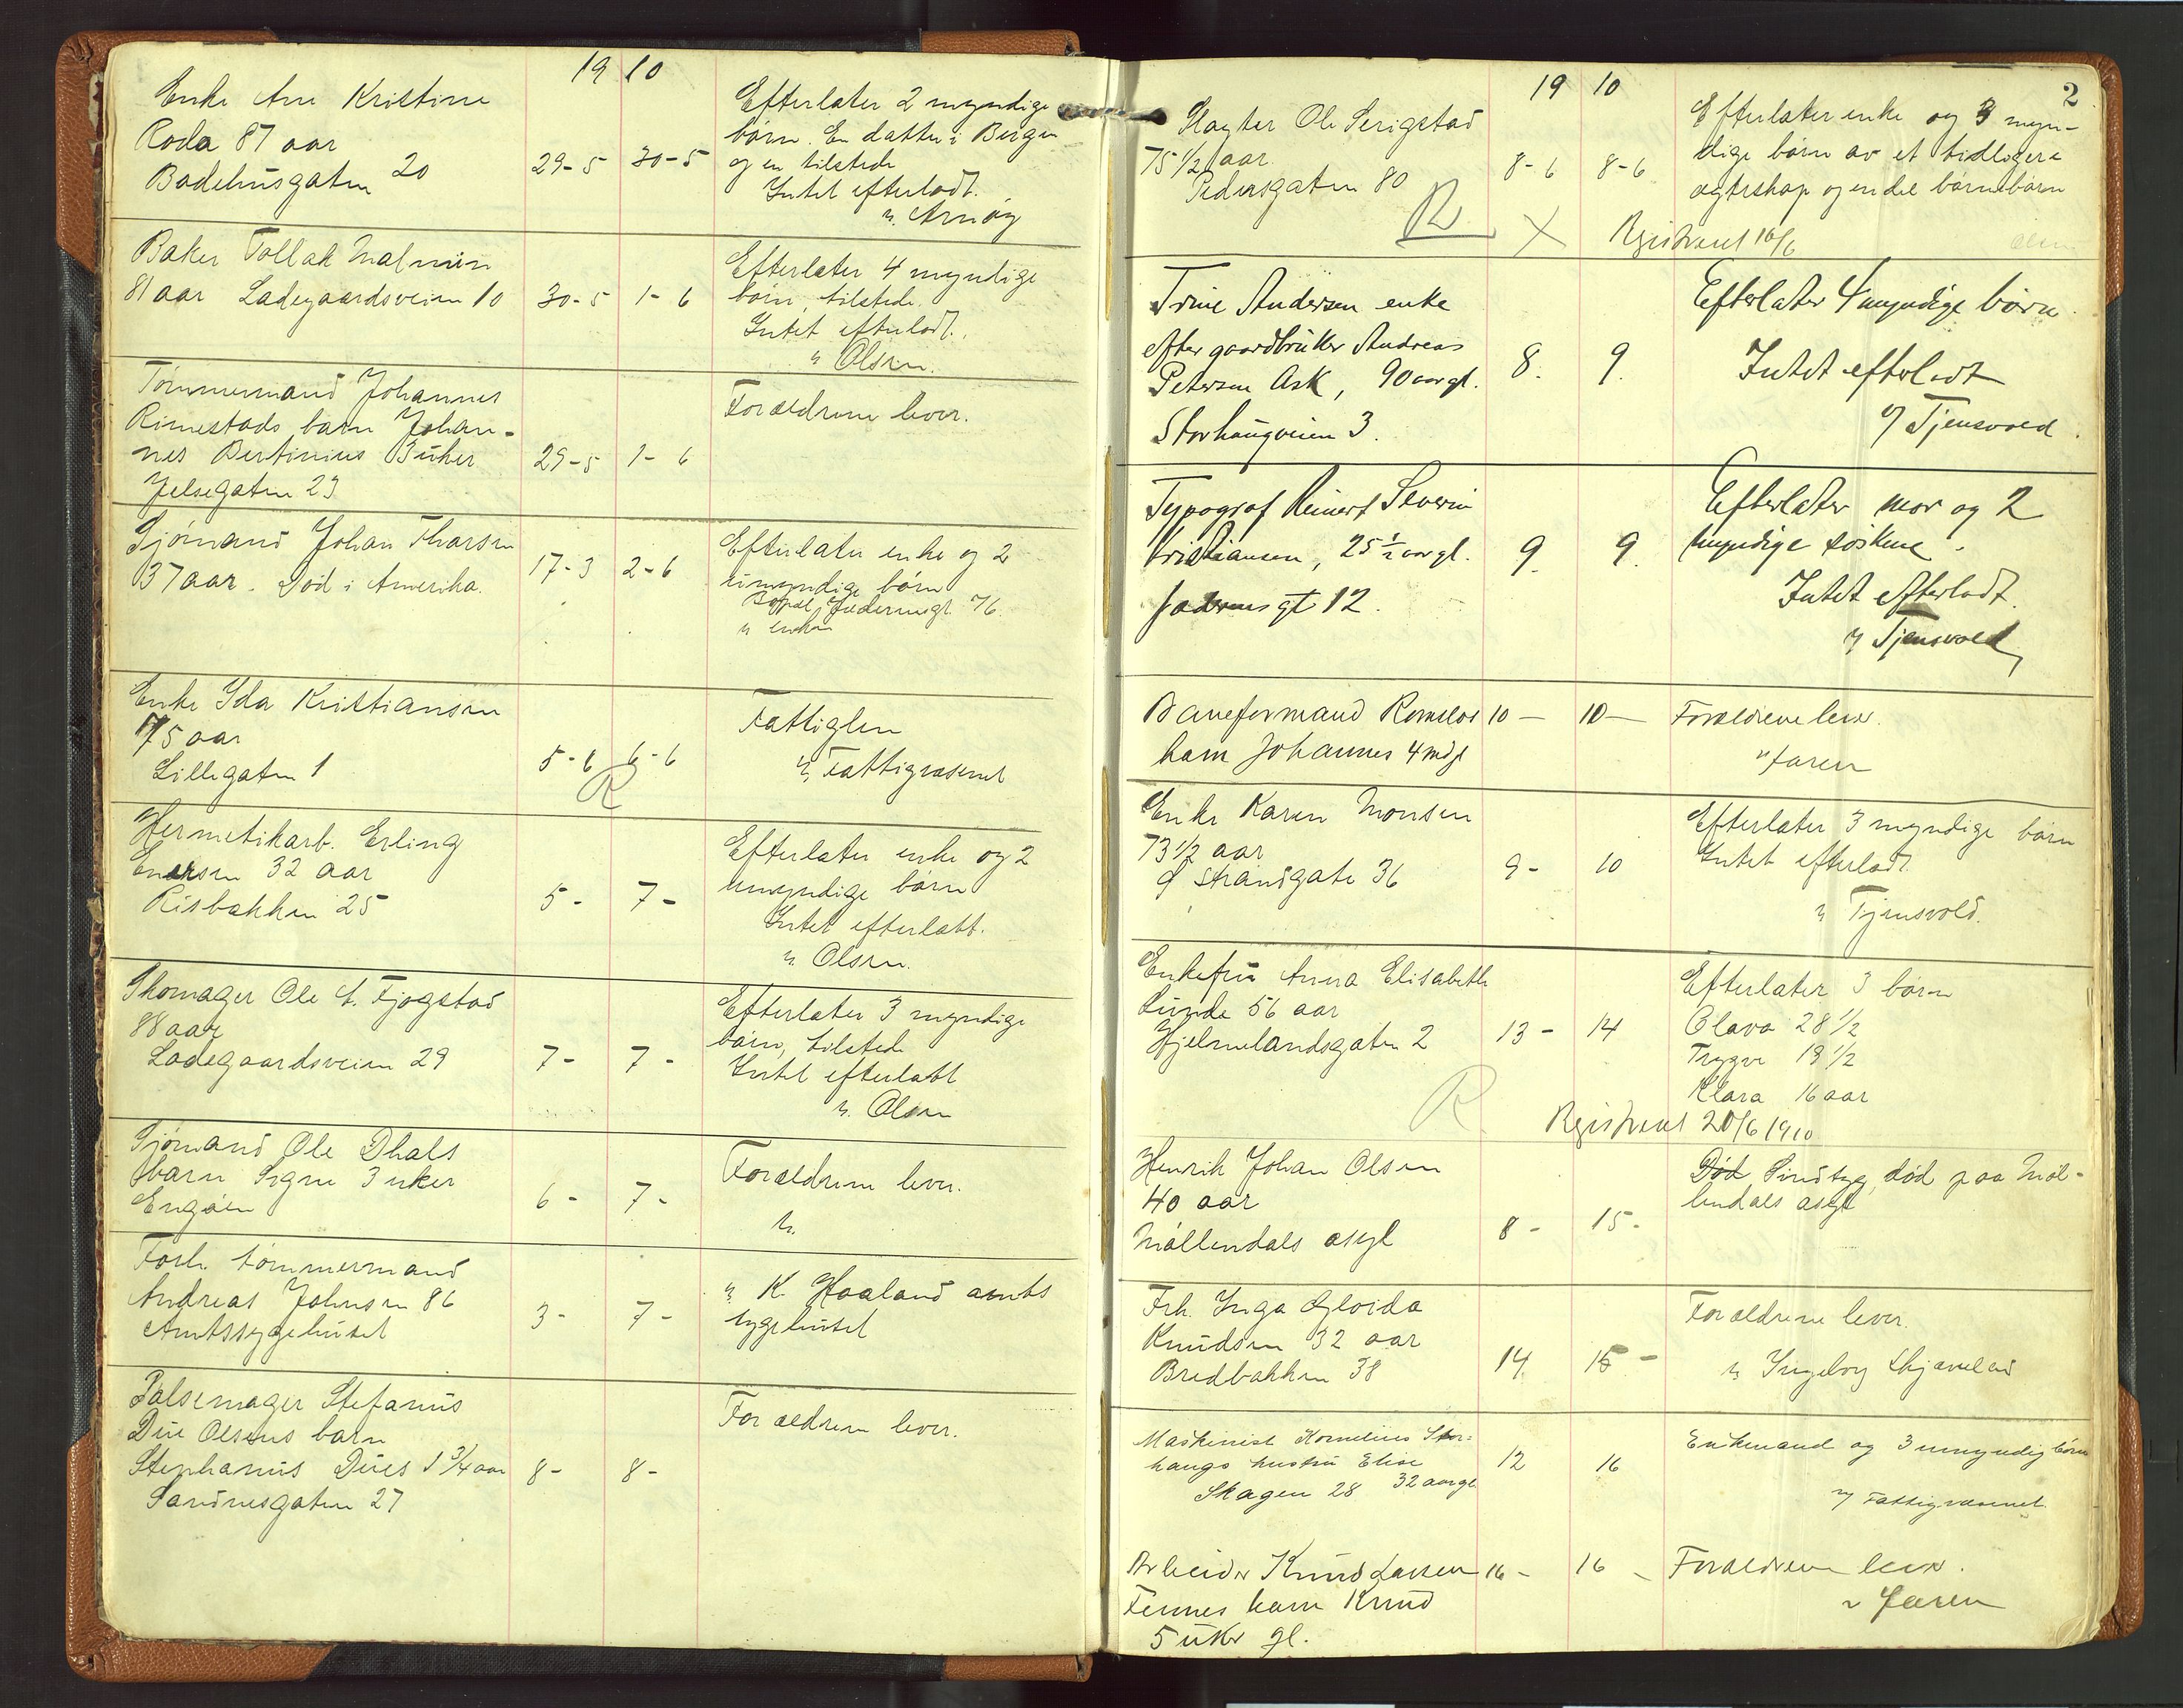 19 10
Enke Ane Kristine
Roda 87 aar
Badehusgaten 20
29-5 30-5
Efterlater 2 myndige
børn. En datter i Bergen
og en tilstede
Intet efterladt.
v. Arnøy
Baker Tollak Malmin
81 aar Ladegaardsveien 10
30-5 1-6
Efterlater 4 myndige
børn, tilstede.
Intet efterladt.
v Olsen.
Tømmermand Johannes
Rimestads barn Johan-
nes Bertinius 3 uker
Jelsegaten 23
29-5 1-6
Forældrene lever.
Sjømand Johan Tharsen
37 aar. Død i Amerika.
17-3 2-6
Efterlater enke og 2
umyndige børn
Bopæl Jæderensgt. 76.
v enken
Enke Ida Kristiansen
75 aar
Lillegaten 1
5-6 6-6
R
Fattiglem
v. Fattigvæsenet
Hermetikarb. Erling
Enersen 32 aar
Risbakken 25
5- 7-
Efterlater enke og 2
umyndige børn
Intet efterlatt.
v. Olsen.
Skomager Ole A. Fjogstad
88 aar
Ladegaardsveien 29
7- 7-
Efterlater 3 myndige
børn, tilstede
Intet efterlatt
v. Olsen
Sjømand Ole Dhals
barn Signe 3 uker
Engøen
6- 7-
Forældrene lever.
v.
Forh. tømmermand
Andreas Johnsen 86
Amtssygehuset
3- 7-
v K. Haaland amts
sygehuset
Pølsemager Stefanus
Due Olsens barn
Stephanus Dues 1 3/4 aar
Sandnesgaten 27
8- 8-
Forældrene lever.
2
19 10
Slagter Ole Serigstad
75 1/2 aar.
Pedersgaten 80
8-6 8-6
R
X
Efterlater enke og 3 myn-
dige børn av et tidligere
ægteskap og en del barnebarn
Registreret 10/6
Olsen
Trine Andersen enke
efter gaardbruker Andreas
Petersen Ask, 90 aar gl.
Storhaugveien 3.
8. 9.
Efterlater 4 myndige børn.
Intet efterladt
v/ Tjensvold.
Typograf Reinert Severin
Kristiansen, 25 1/2 aar gl.
Jæderens gt 12.
9. 9.
Efterlater mor og 2
myndige søskene.
Intet efterladt.
v/ Tjensvold
Baneformand
barn Johannes 4 mdgl
10 — 10 —
Forældrene lever.
v faren
Enke Karen Monsen
73 1/2 aar
Ø Strandgate 36
9- 10
Efterlater 3 myndige børn
Intet efterladt
v Tjensvold.
Enkefru Anna Elisabeth
Lunde 56 aar
Hjelmelandsgaten 2
13- 14
R
Efterlater 3 børn
Olava 28 1/2
Trygve 19 1/2
Klara 16 aar
Registreret 20/6 1910
Henrik Johan Olsen
40 aar
Møllendals asyl
8- 15-
Død Sindsyg, død paa Møl-
lendals asyl
Frk. Inga Gloida
Knudsen 32 aar
Bredbakken 38
14 15-
Forældrene lever.
v Ingeborg Skjæveland
Maskinist Kornelius Stor-
haugs hustru Elise
Skagen 28 32 aar gl
12 16
Enkemand og 3 umyndig børn
v/ Fattigvæsenet
Arbeider Knud Larsen
Fennes barn Knud
5 uker gl.
16- 16-
Forældrene lever.
v Faren